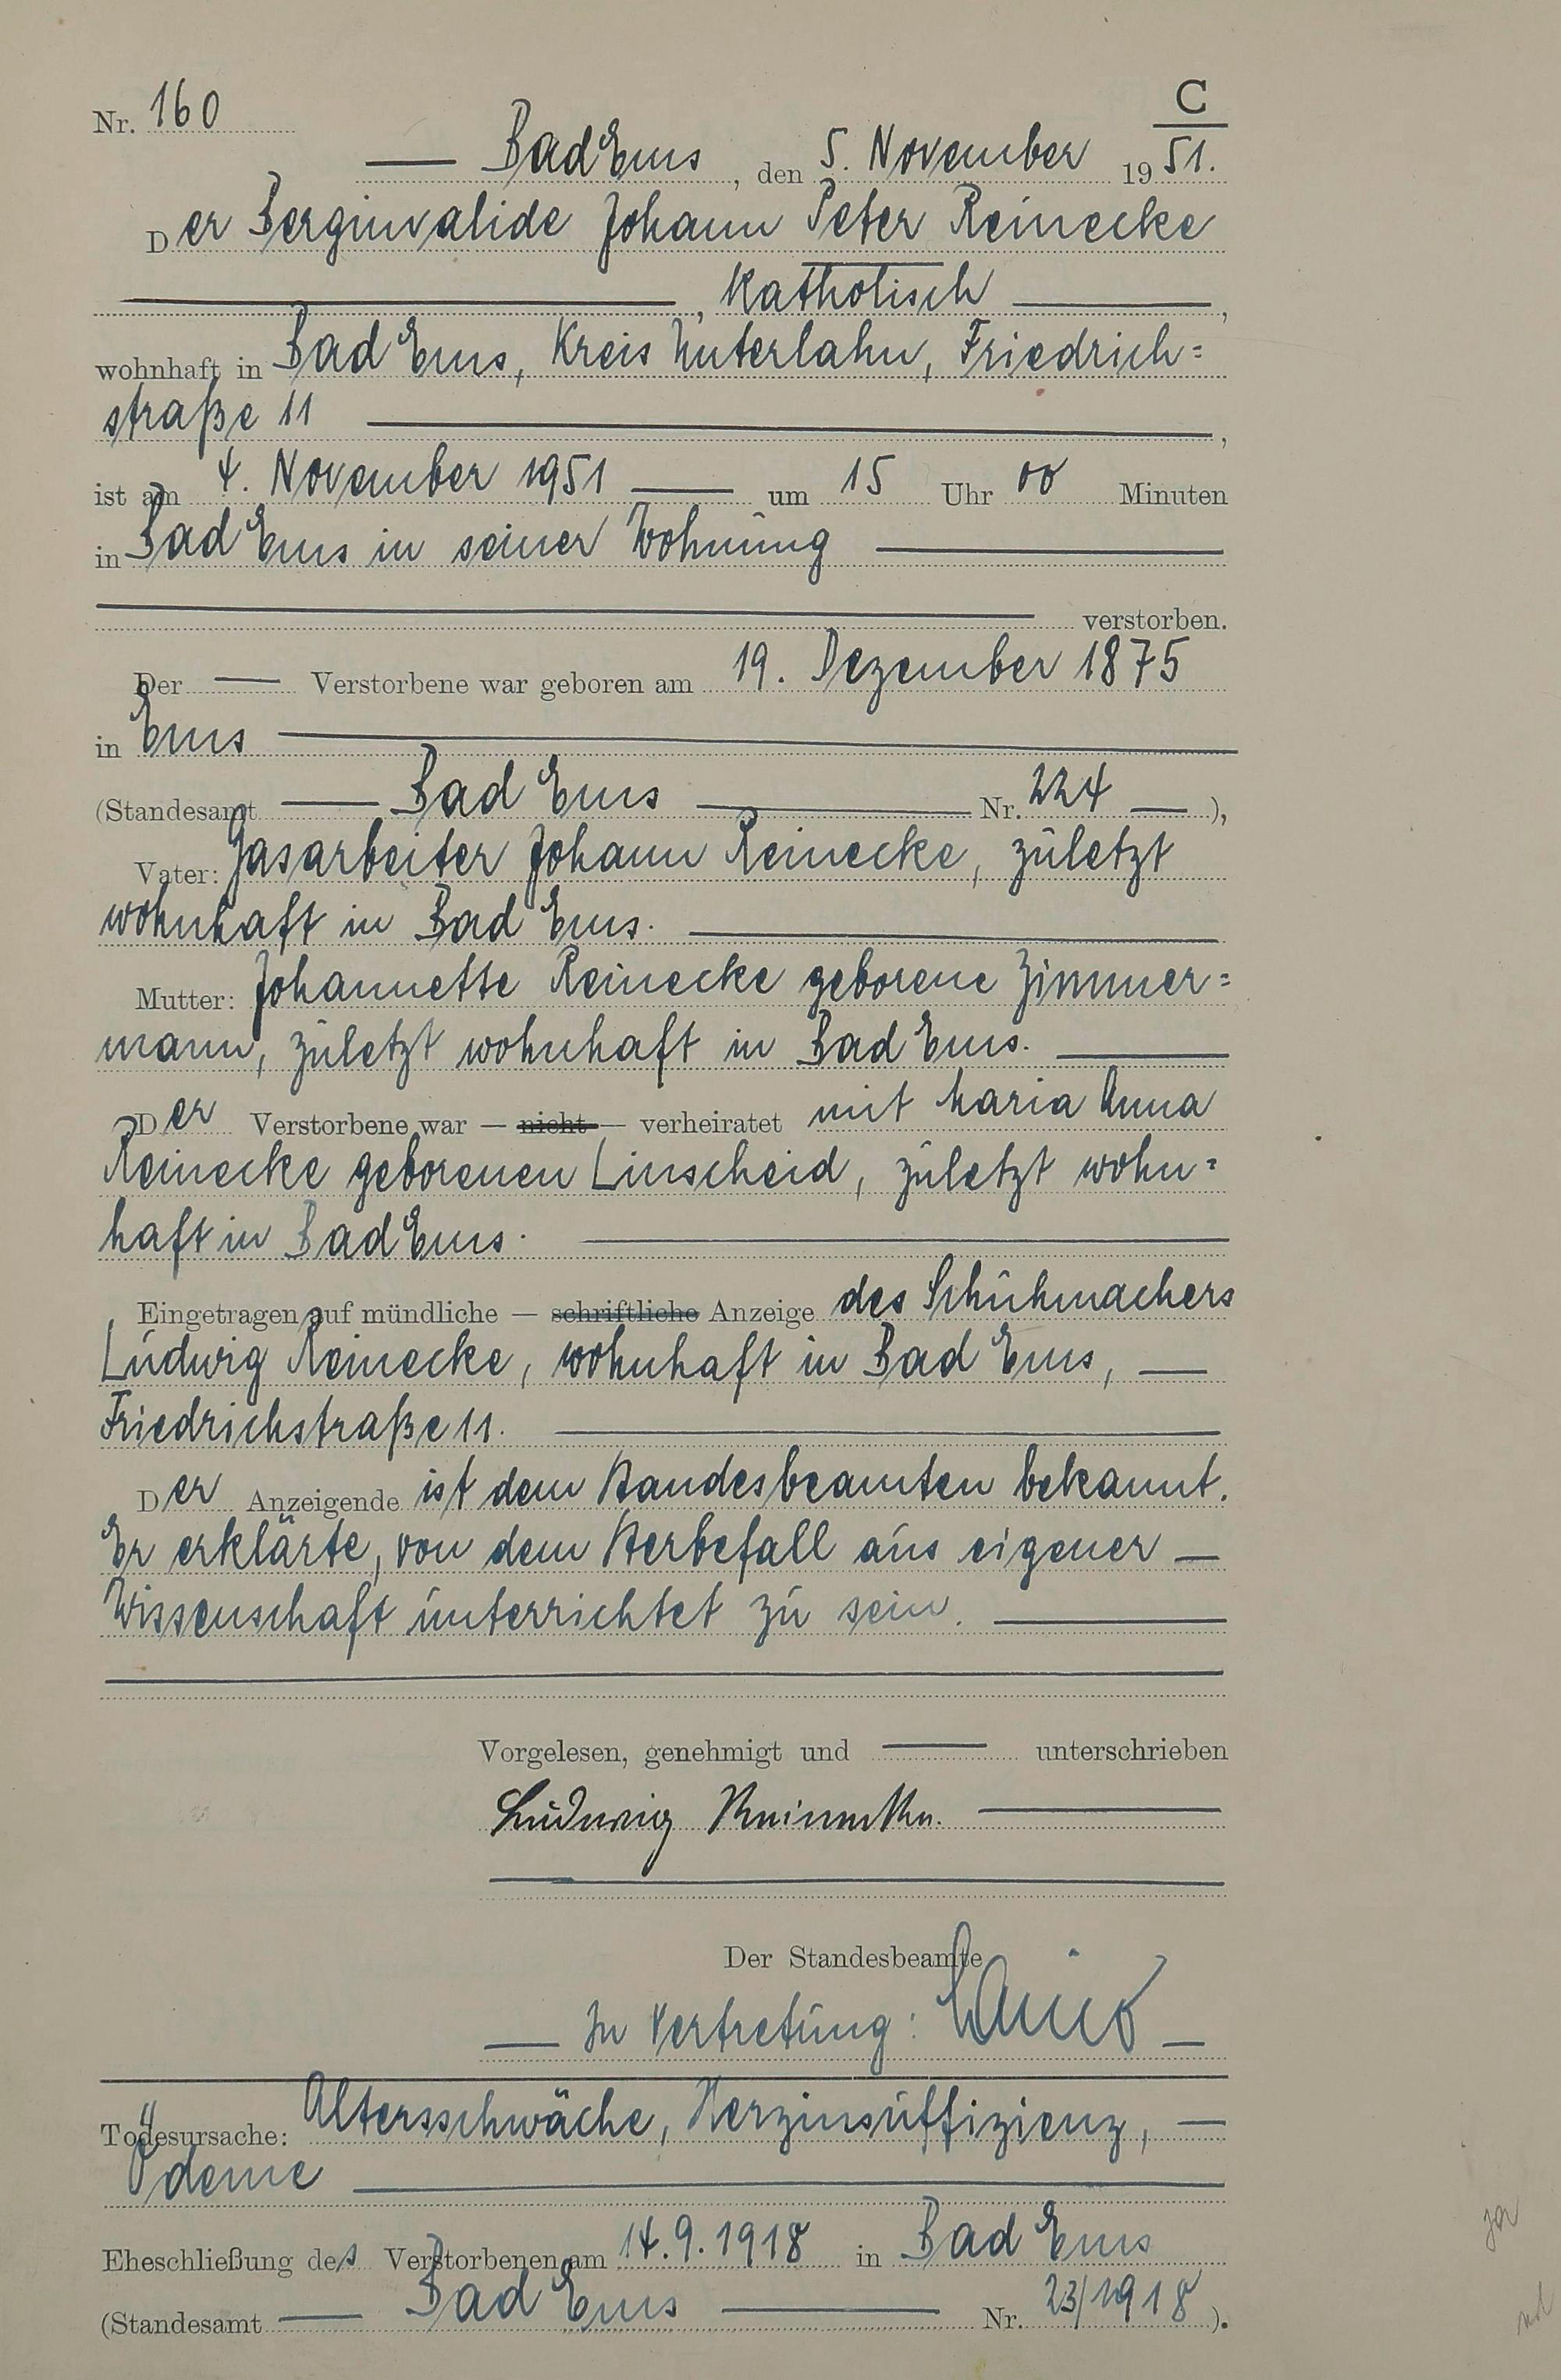 C
Nr. 160
Bad Ems, den 5. November 1951.
Der Berginvalide Johann Peter Reinecke
, katholisch ,
wohnhaft in Bad Ems, Kreis Unterlahn, Friedrich=
straße 11 ,
ist am 4. November 1951 um 15 Uhr 00 Minuten
in Bad Ems in seiner Wohnung
verstorben.
Der Verstorbene war geboren am 19. Dezember 1875
in Ems
(Standesamt Bad Ems Nr. 224 ),
Vater: Gasarbeiter Johann Reinecke, zuletzt
wohnhaft in Bad Ems.
Mutter: Johannette Reinecke geborene Zimmer=
mann, zuletzt wohnhaft in Bad Ems.
Der Verstorbene war — nicht — verheiratet mit Maria Anna
Reinecke geborenen Linscheid, zuletzt wohn=
haft in Bad Ems.
Eingetragen auf mündliche — schriftliche Anzeige des Schuhmachers
Ludwig Reinecke, wohnhaft in Bad Ems,
Friedrichstraße 11.
Der Anzeigende ist dem Standesbeamten bekannt.
Er erklärte, von dem Sterbefall aus eigener
Wissenschaft unterrichtet zu sein.
Vorgelesen, genehmigt und unterschrieben
Ludwig Reinecke.
Der Standesbeamte
In Vertretung:
Todesursache: Altersschwäche, Herzinsuffizienz,
Ödeme
Eheschließung des Verstorbenen am 14.9.1918 in Bad Ems
(Standesamt Bad Ems Nr. 23/1918 ).